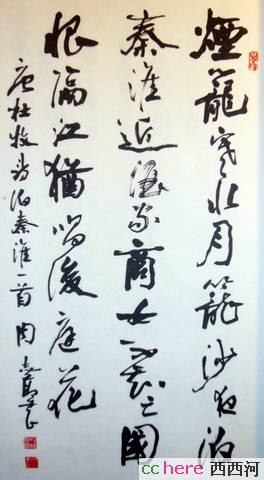 煙籠寒水月籠沙夜泊
秦淮近酒家商女不知亡國
恨隔江猶唱後庭花
唐杜牧詩泊秦淮一首 周
cchere 西西河